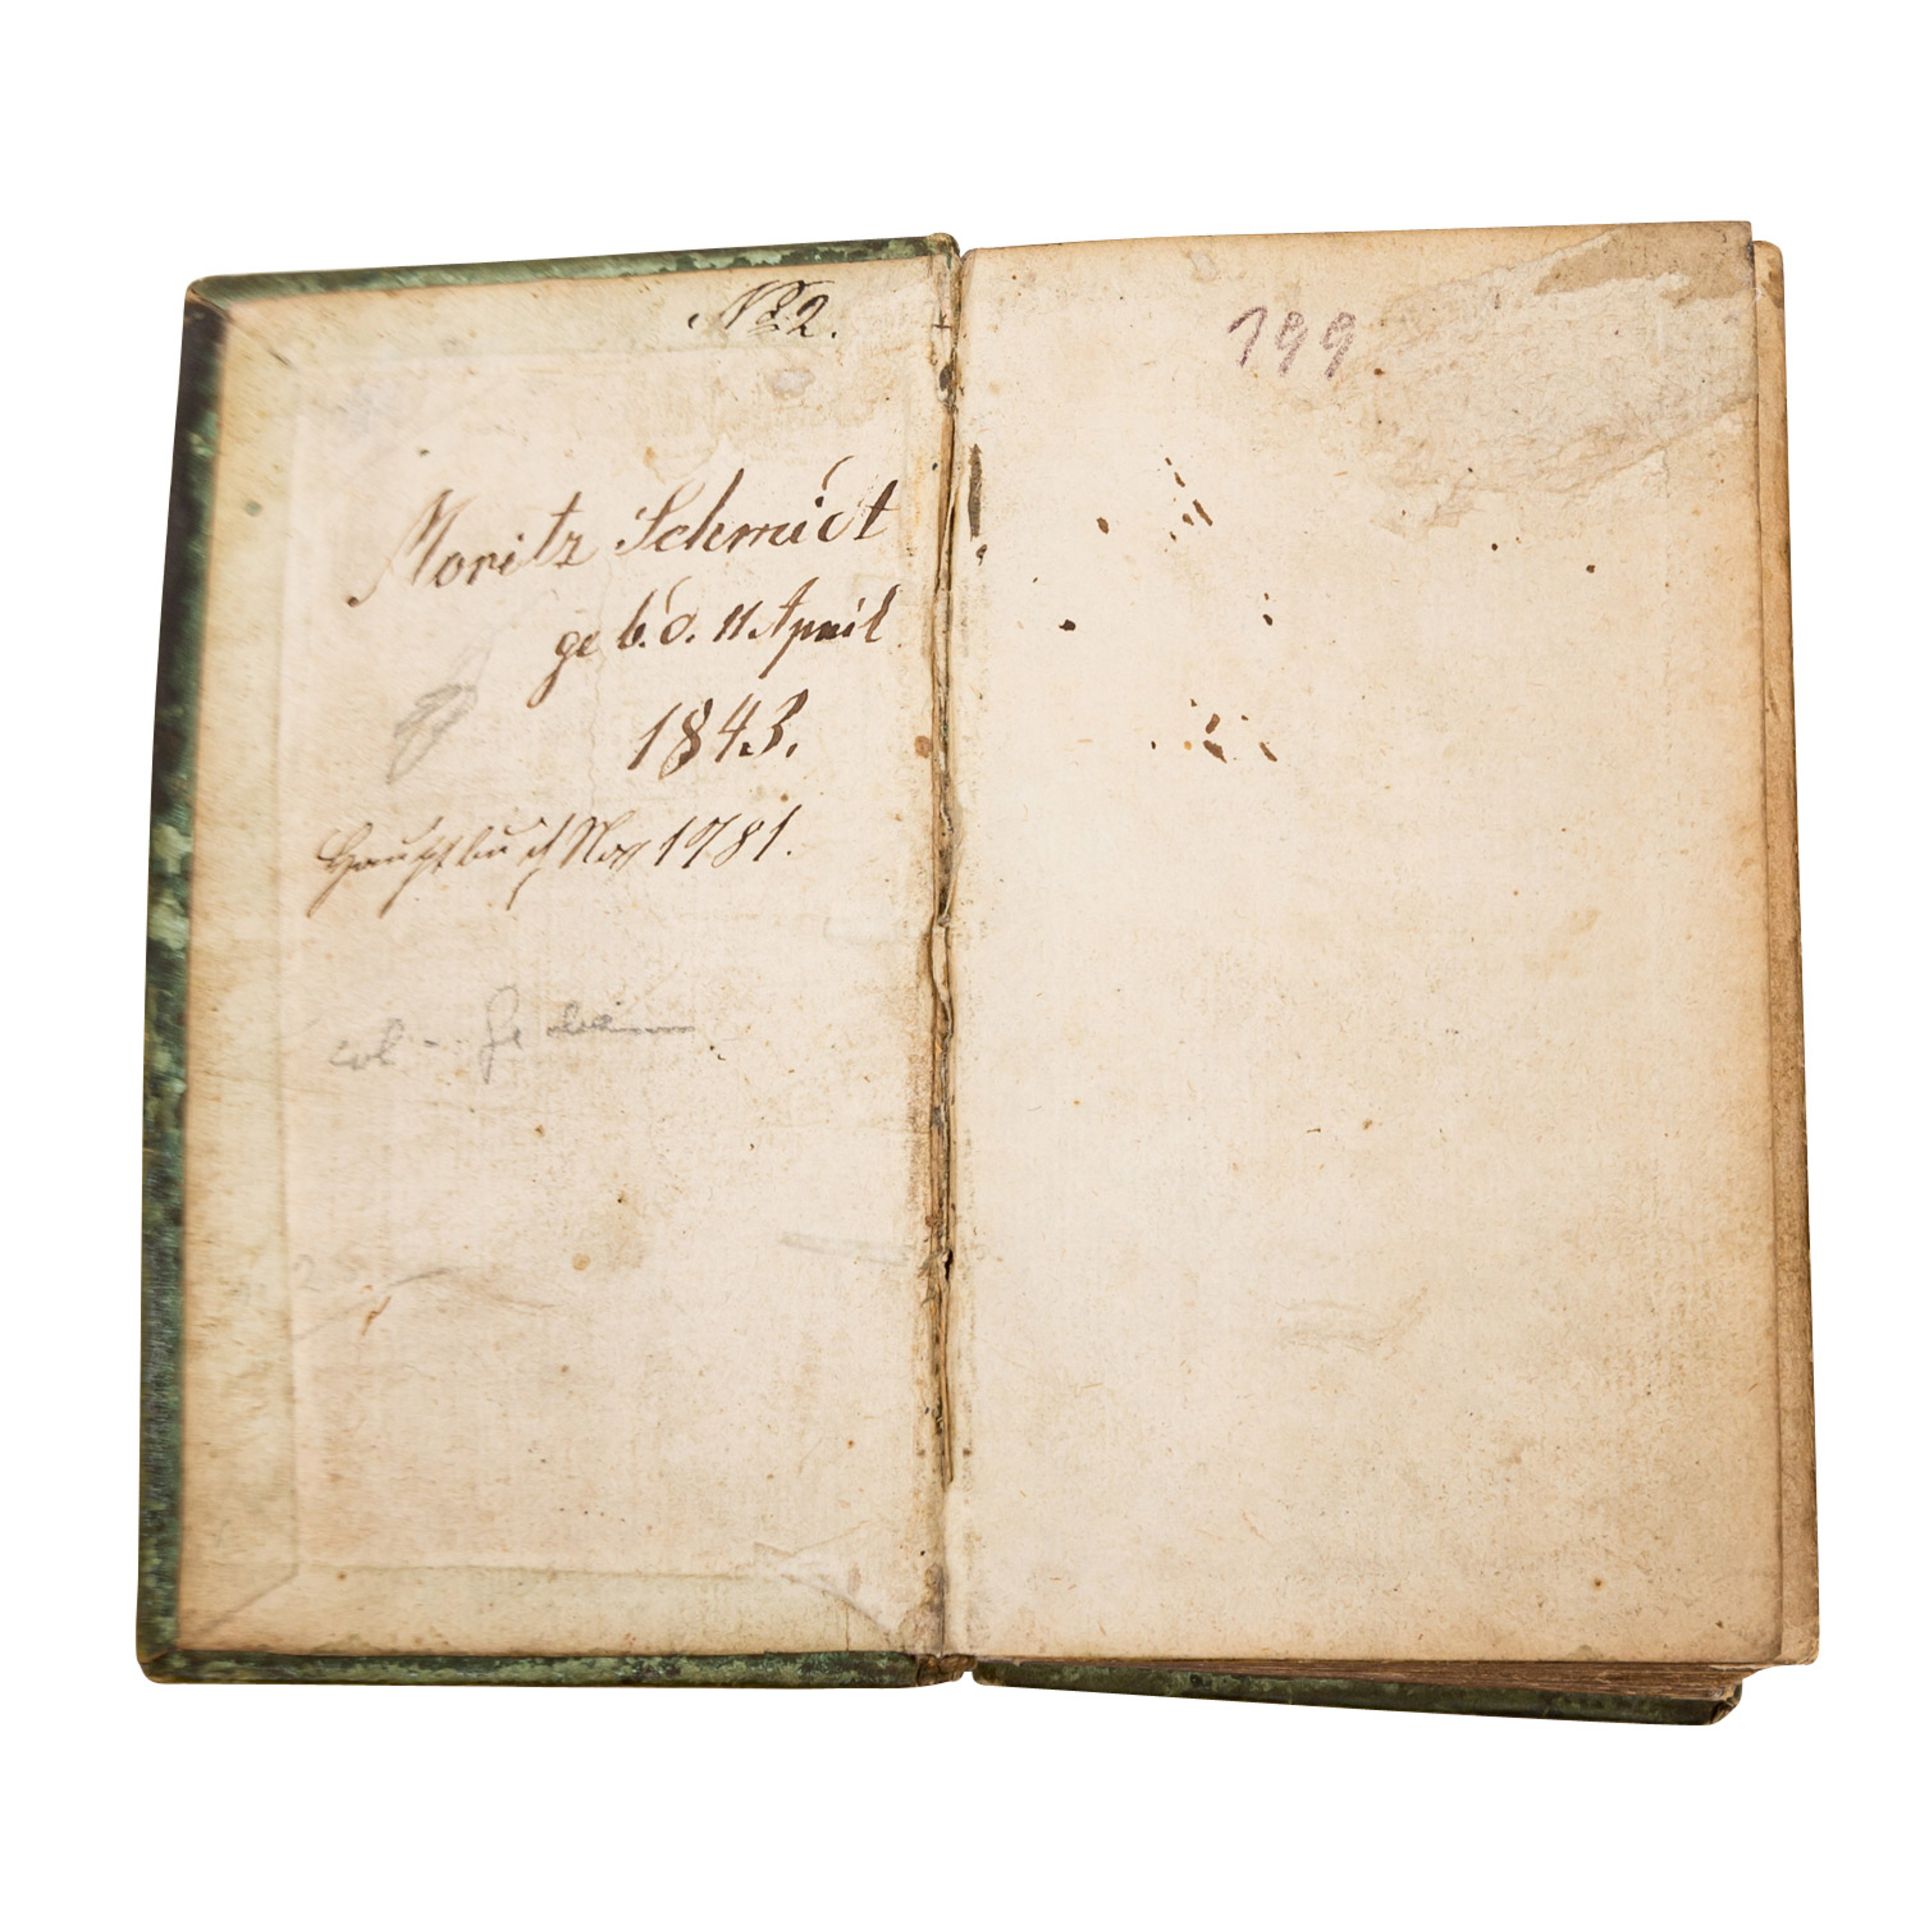 No 2.
Moritz Schmidt
geb. d. 11 April
1843.
Hauptbuch No 1781.
199